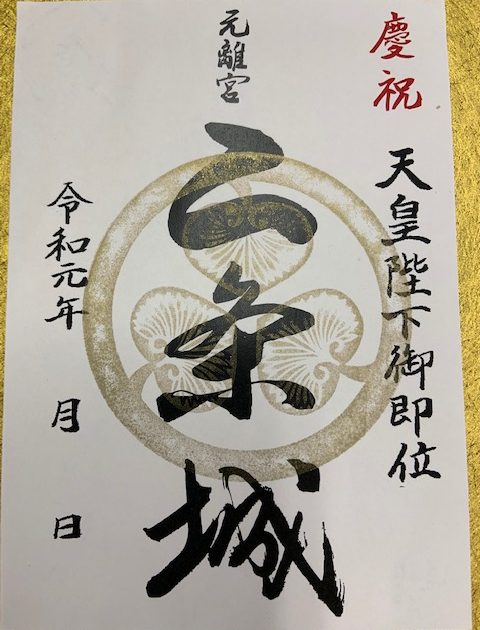 慶祝
天皇陛下御即位
元離宮
二条城
令和元年 月 日